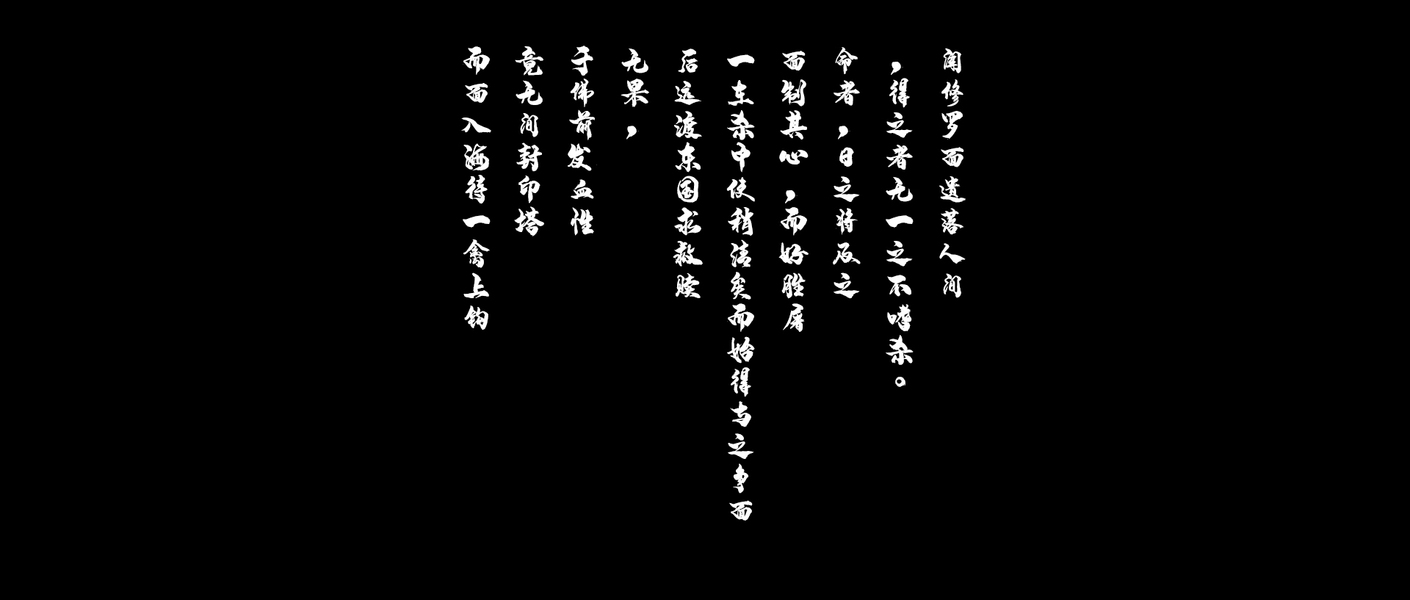 闻修罗面遗落人间
，得之者无一之不嗜杀。
命者，日之将反之
面制其心，而好胜屠
一主杀中使稍洁矣而始得与之争面
后远渡东国求救赎
无果，
于佛前发血性
竟无间封印塔
而面入海待一禽上钩